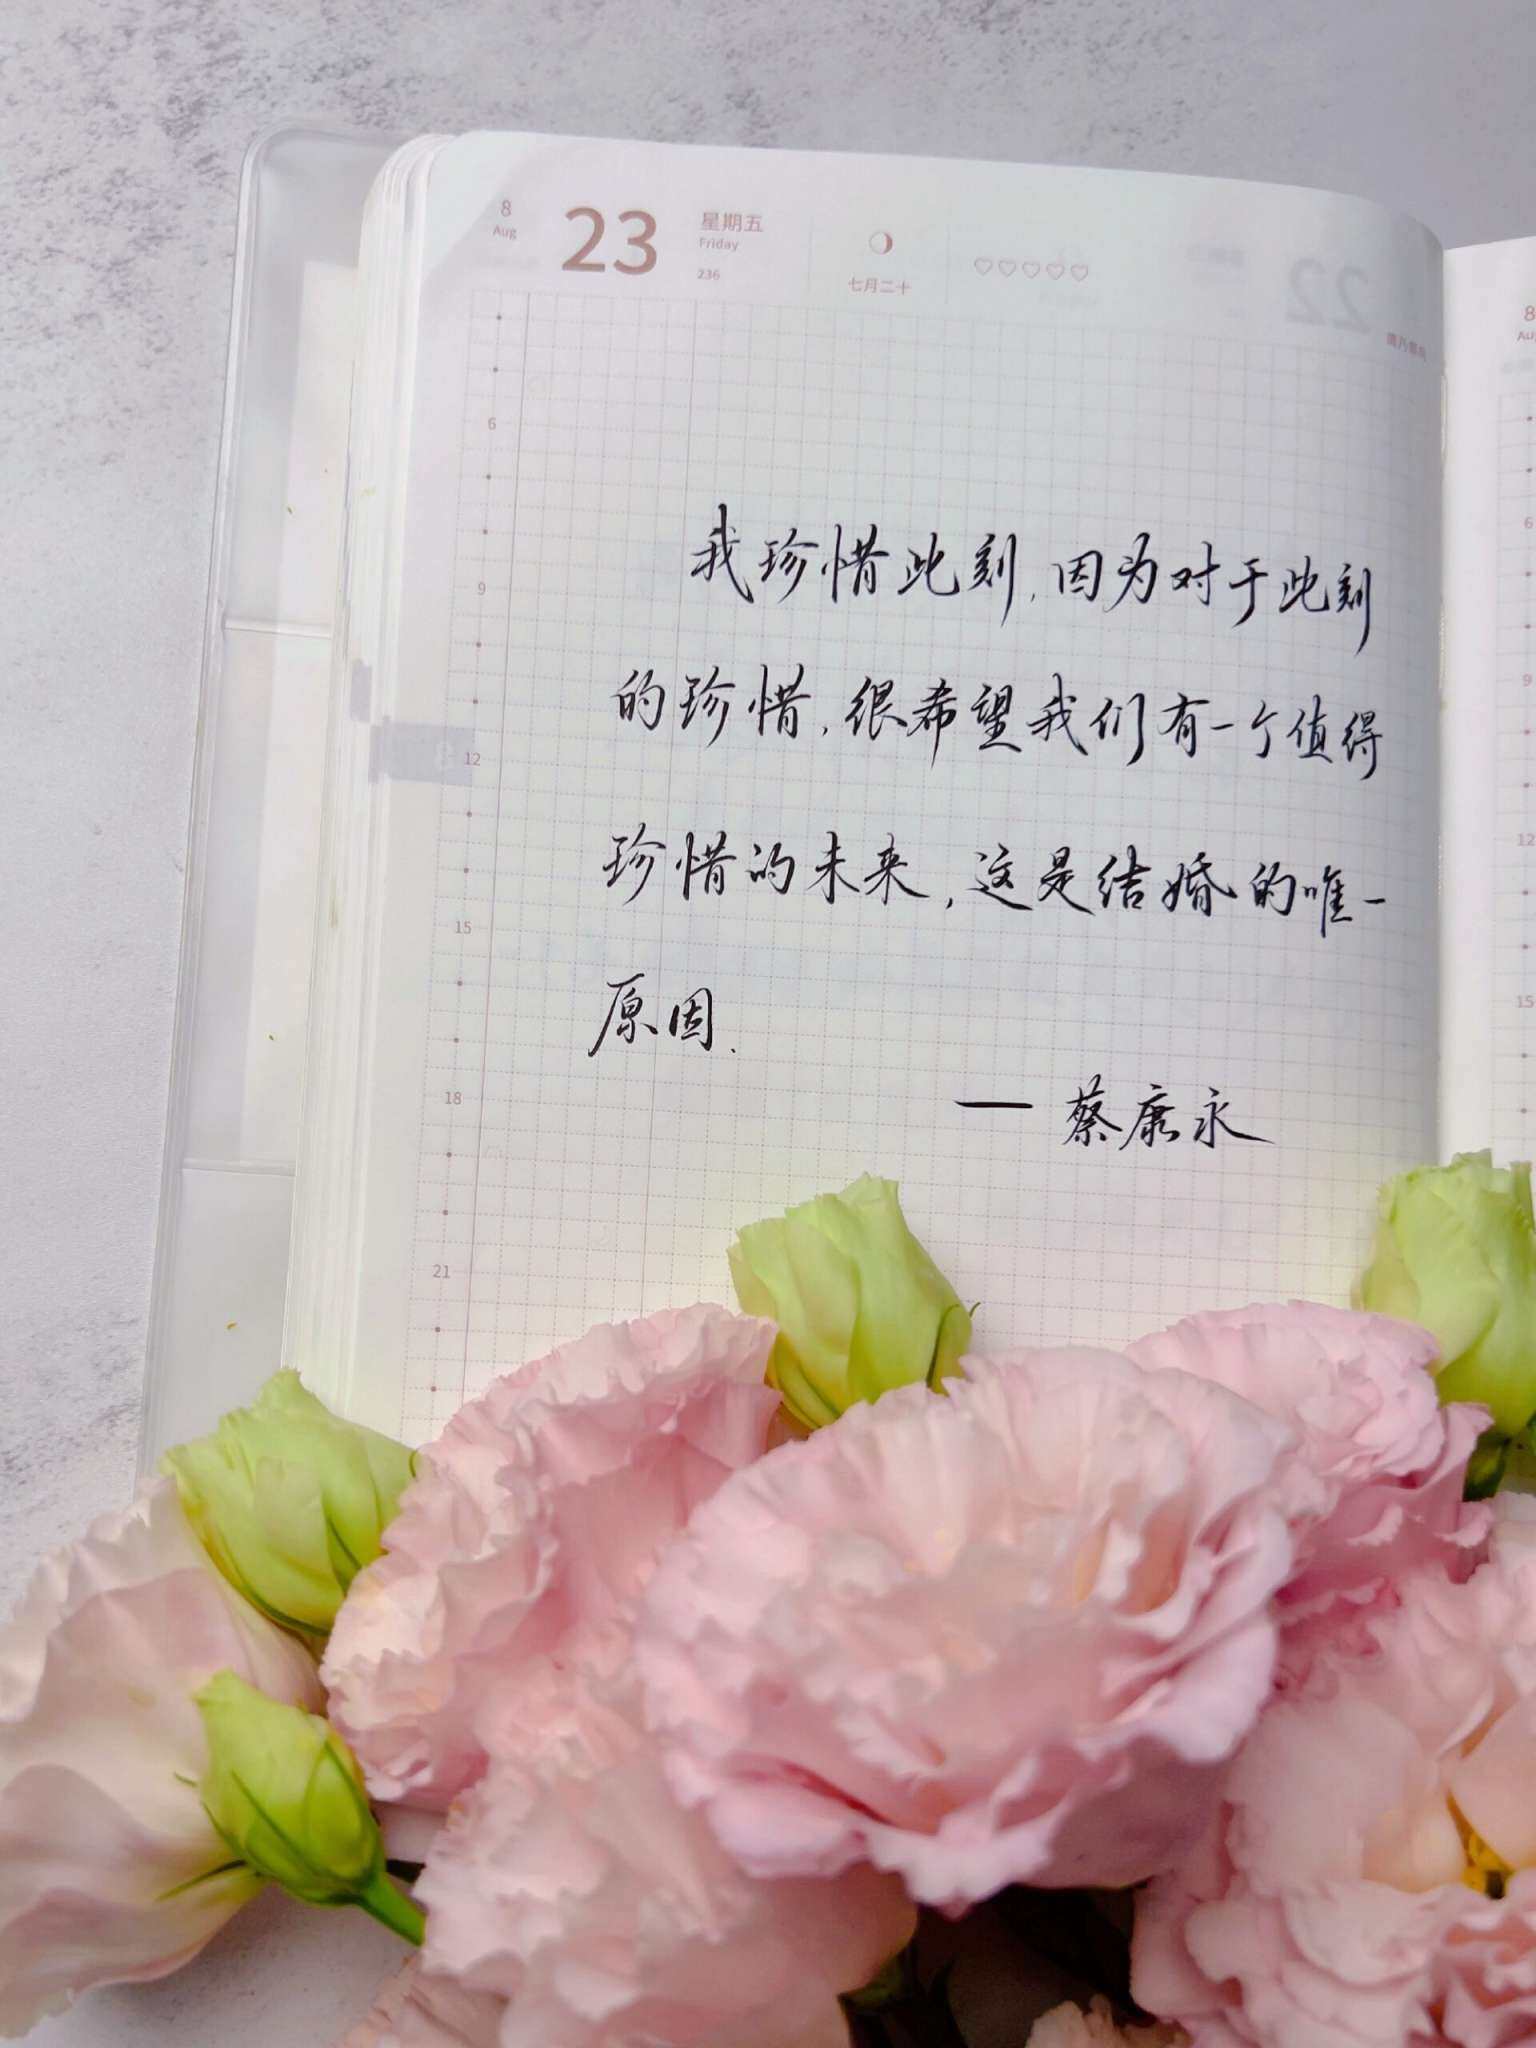 8
Aug
23
星期五
Friday
236
七月二十
6
9
12
15
18
21
我珍惜此刻,因为对于此刻
的珍惜,很希望我们有一个值得
珍惜的未来,这是结婚的唯一
原因.
— 蔡康永
8
6
9
12
15